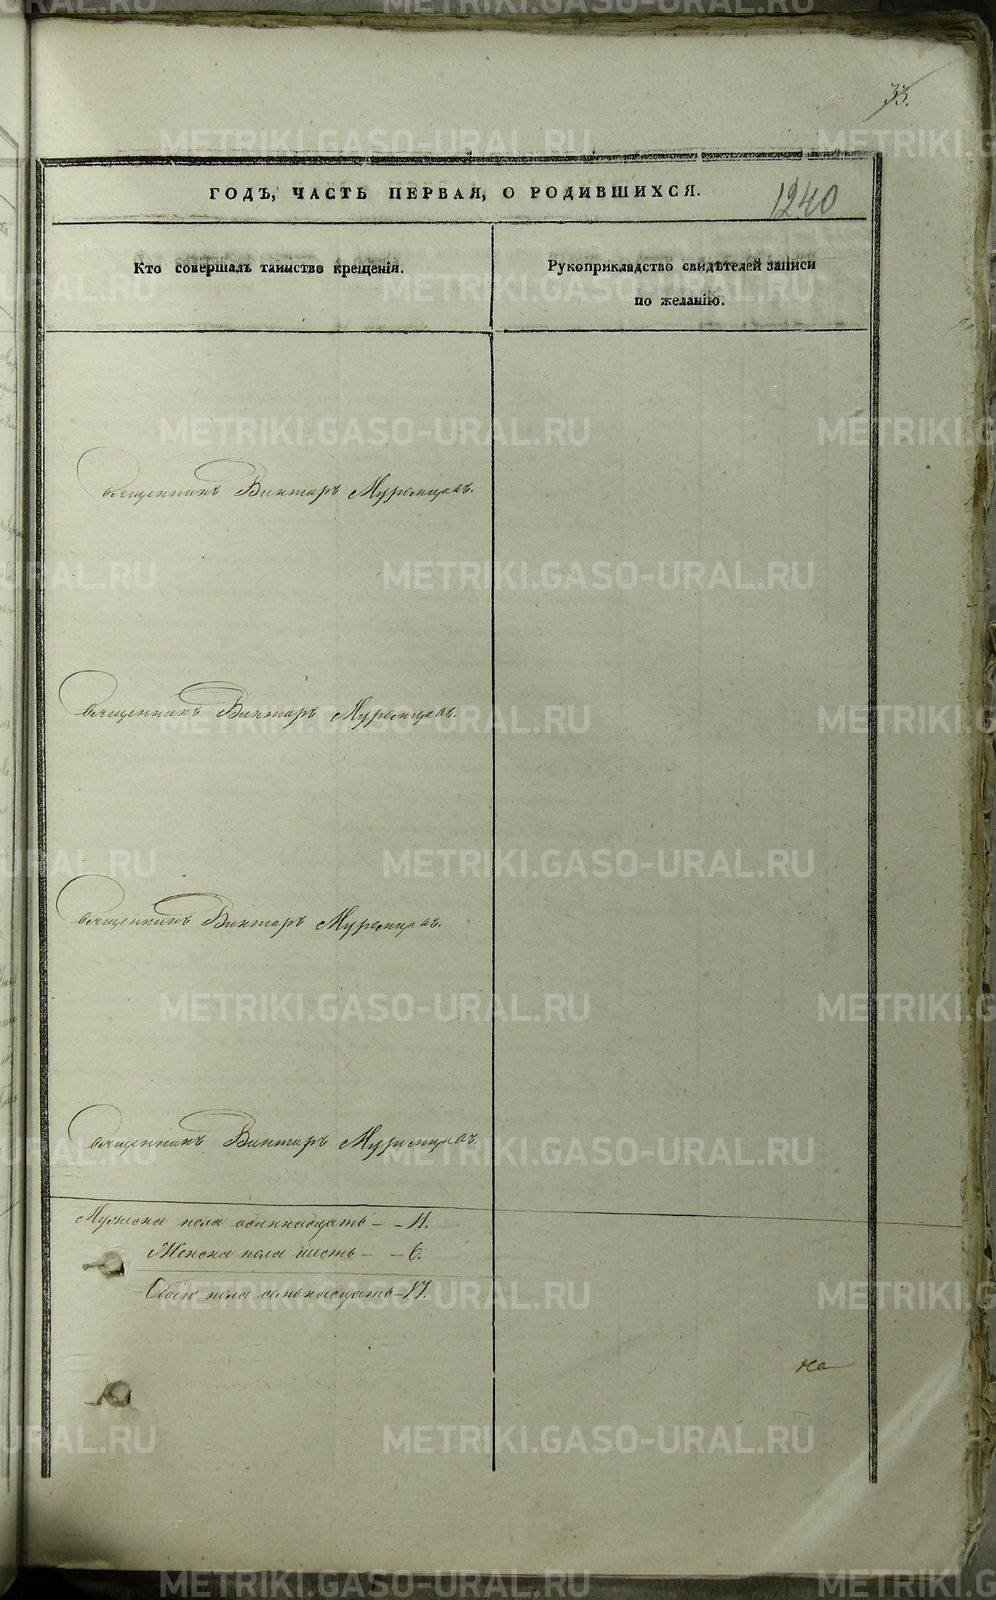 33.
ГОДЪ, ЧАСТЬ ПЕРВАЯ, О РОДИВШИХСЯ.
1240
Кто совершалъ таинство крещенія.
Рукоприкладство свидѣтелей записи
по желанію.
Священникъ Викторъ Муромцовъ.
Священникъ Викторъ Муромцовъ.
Священникъ Викторъ Муромцовъ.
Священникъ Викторъ Муромцовъ.
Мужеска пола одиннадцать - - 11.
Женска пола шесть - - 6.
Обоего пола семнадцать - 17.
METRIKI.GASO-URAL.RU